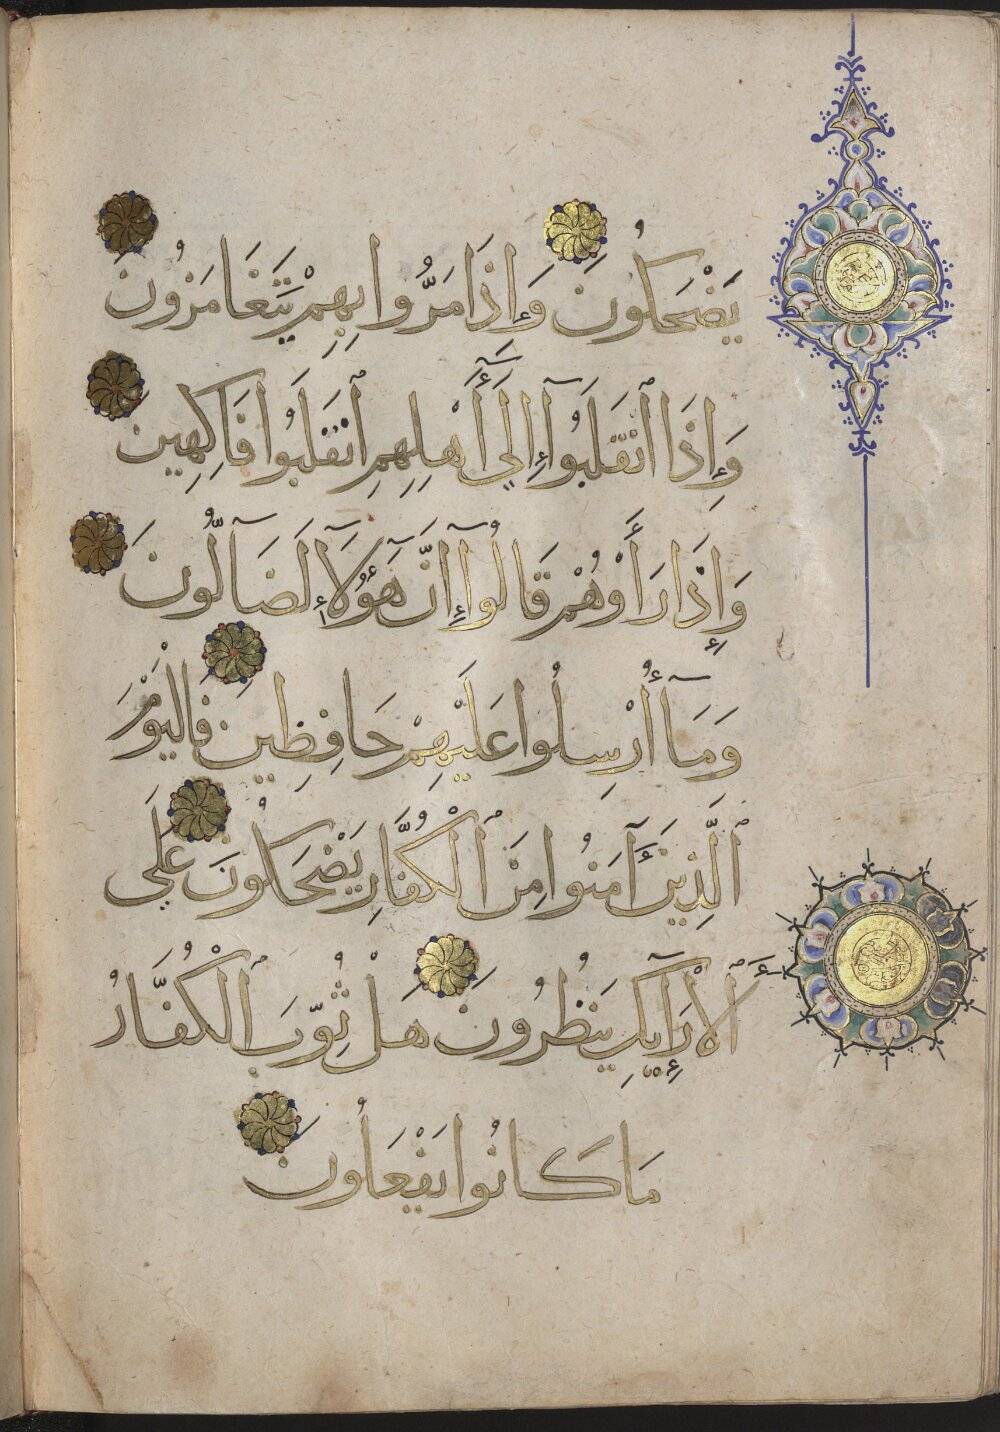 يَضْحَكُونَ وَإِذَا مَرُّوا بِهِمْ يَتَغَامَزُونَ
وَإِذَا ٱنْقَلَبُوآ إِلَىٓ أَهْلِهِمِ ٱنْقَلَبُوا فَاكِهِينَ
وَإِذَا رَأَوْهُمْ قَالُوٓا إِنَّ هَٓؤُلَآءِ لَضَآلُّونَ
وَمَآ أُرْسِلُوا عَلَيْهِمْ حَافِظِينَ فَالْيَوْمَ
ٱلَّذِينَ آمَنُوا مِنَ ٱلْكُفَّارِ يَضْحَكُونَ عَلَى
ٱلْأَرَآئِكِ يَنْظُرُونَ هَلْ ثُوِّبَ ٱلْكُفَّارُ
مَا كَانُوا يَفْعَلُونَ